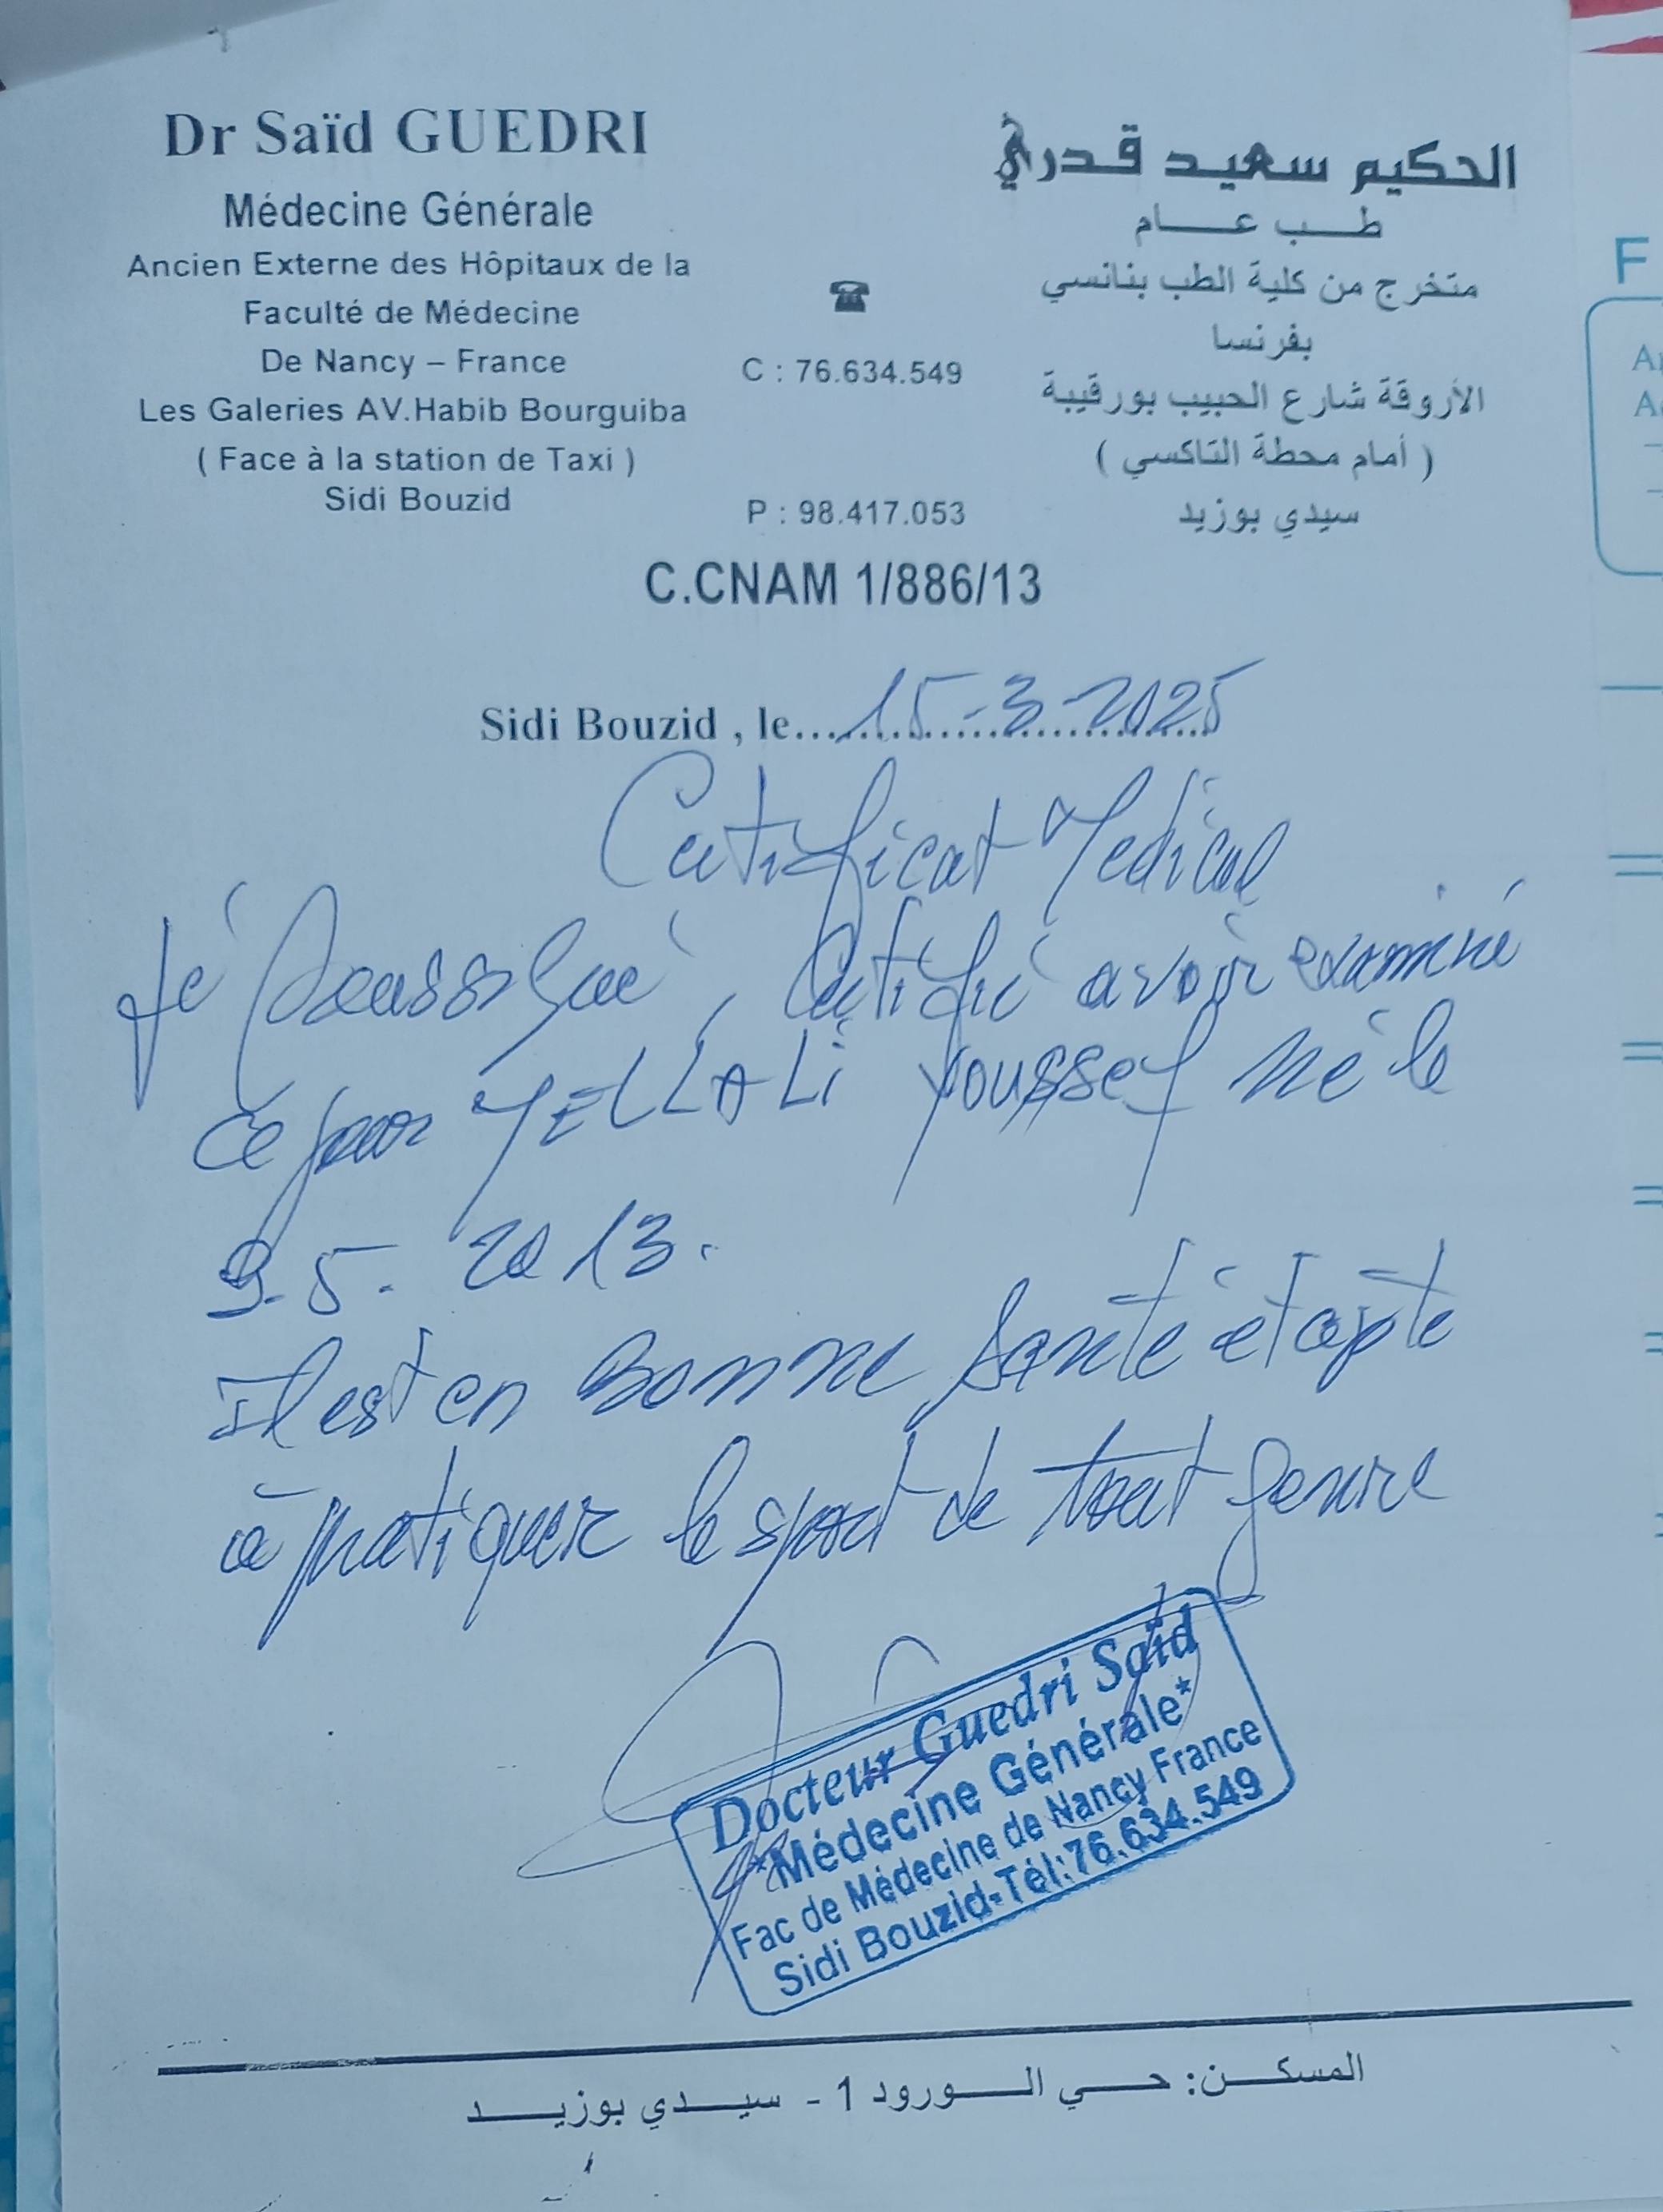 Dr Saïd GUEDRI
Médecine Générale
Ancien Externe des Hôpitaux de la
Faculté de Médecine
De Nancy – France
Les Galeries AV.Habib Bourguiba
( Face à la station de Taxi )
Sidi Bouzid
C : 76.634.549
P : 98.417.053
الحكيم سعيد قدري
طب عام
متخرج من كلية الطب بنانسي
بفرنسا
الأروقة شارع الحبيب بورقيبة
( أمام محطة التاكسي )
سيدي بوزيد
C.CNAM 1/886/13
Sidi Bouzid , le 15-3-2025
Certificat Medical
Je soussigné, Certifie avoir examiné
ce jour JELLALi Youssef né le
9.5.2013.
Il est en Bonne santé et apte
à pratiquer le sport de tout genre
Docteur Guedri Saïd
*Médecine Générale*
Fac de Médecine de Nancy France
Sidi Bouzid-Tél:76.634.549
المسكن: حي الورود 1 - سيدي بوزيد
F
A